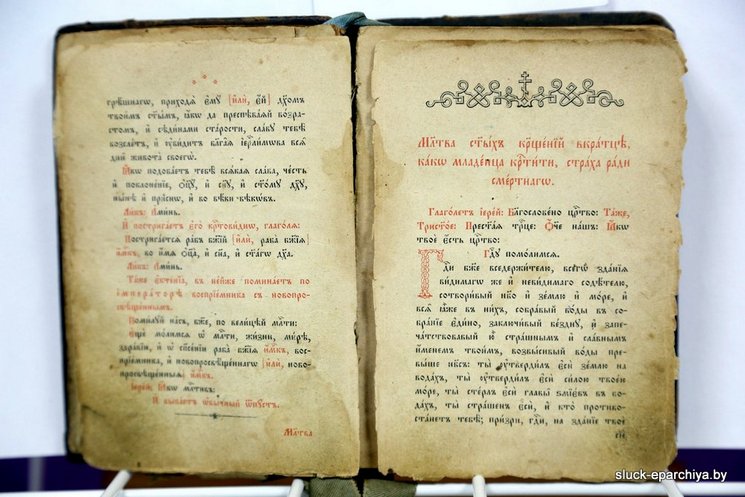 грѣшнагѡ, приходѧ̀ є҆мꙋ̀ [и҆лѝ, є҆́й] дꙋ́хомъ
твои́мъ ст҃ы́мъ, ꙗ҆́кѡ да преспѣва́ѧй во́зра-
стомъ, и҆ сѣди́нами ста́рости, сла́вꙋ тебѣ̀
возсле́тъ, и҆ ᲂу҆ви́дитъ блага̑ѧ і҆ерⷭ҇ли́мѡва всѧ̑
дни̑ живота̀ своегѡ̀.
Ꙗ҆́кѡ подоба́етъ тебѣ̀ всѧ́каѧ сла́ва, че́сть
и҆ поклоне́нїе, ѻ҆ц҃ꙋ̀, и҆ сн҃ꙋ, и҆ ст҃о́мꙋ дх҃ꙋ,
ны́нѣ и҆ при́снѡ, и҆ во вѣ́ки вѣкѡ́въ.
Ли́къ: А҆ми́нь.
И҆ пострига́етъ є҆го̀ крⷭ҇тови́днѡ, глаго́лѧ:
Пострига́етсѧ ра́бъ бж҃їй [и҆лѝ, раба̀ бж҃їѧ]
и҆́мкъ, во и҆́мѧ ѻ҆ц҃а̀, и҆ сн҃а, и҆ ст҃а́гѡ дх҃а.
Ли́къ: А҆ми́нь.
Та́же є҆ктенїа̀, въ не́йже помина́етъ по
і҆мпера́торѣ воспрїе́мника съ новопро-
свѣще́ннымъ.
Поми́лꙋй на́съ, бж҃е, по вели́цѣй мⷭ҇ти:
Є҆щѐ мо́лимсѧ ѡ҆ мⷭ҇ти, жи́зни, ми́рѣ,
здра́вїи, и҆ ѡ҆ сп҃се́нїи раба̀ бж҃їѧ и҆́мкъ, вос-
прїе́мника, и҆ новопросвѣще́ннагѡ [и҆лѝ, ново-
просвѣще́нныѧ] и҆́мкъ.
І҆ере́й: Ꙗ҆́кѡ мⷭ҇тивъ:
И҆ быва́етъ ѡ҆бы́чный ѿпꙋ́стъ.
Мл҃тва
Мл҃тва ст҃ы́хъ крⷭ҇ще́нїй вкра́тцѣ,
ка́кѡ младе́нца крⷭ҇ти́ти, стра́ха ра́ди
сме́ртнагѡ.
Глаго́летъ і҆ере́й: Блгⷭ҇ве́но црⷭ҇тво: Та́же,
Трист҃о́е: Прест҃а́ѧ трⷪ҇це: Ѻ҆́ч҃е на́шъ: Ꙗ҆́кѡ
твоѐ є҆́сть црⷭ҇тво:
Гдⷭ҇ꙋ помо́лимсѧ.
Гдⷭ҇и бж҃е вседержи́телю, всегѡ̀ зда́нїѧ
ви́димагѡ же и҆ неви́димагѡ содѣ́телю,
сотвори́вый нб҃о и҆ зе́млю и҆ мо́ре, и҆
всѧ̑ ꙗ҆̀же въ ни́хъ, собра́вый во́ды въ со-
бра́нїе є҆ди́но, заключи́вый бе́зднꙋ, и҆ запе-
ча́тствовавый ю҆̀ стра́шнымъ и҆ сла́внымъ
и҆́менемъ твои́мъ, возвы́сивый во́ды пре-
вы́ше нб҃съ: ты̀ ᲂу҆тверди́лъ є҆сѝ зе́млю на
вода́хъ, ты̀ ᲂу҆тверди́лъ є҆сѝ си́лою твое́ю
мо́ре, ты̀ сте́рлъ є҆сѝ главы̑ ѕмїє́въ въ во-
да́хъ, ты̀ стра́шенъ є҆сѝ, и҆ кто̀ противо-
ста́нетъ тебѣ̀; при́зри, гдⷭ҇и, на зда́нїе твоѐ
sluck-eparchiya.by